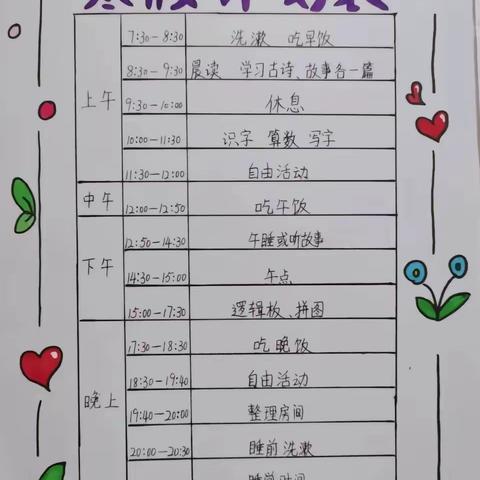 寒假计划表
上午
7:30-8:30 洗漱 吃早饭
8:30-9:30 晨读 学习古诗、故事各一篇
9:30-10:00 休息
10:00-11:30 识字 算数 写字
11:30-12:00 自由活动
中午
12:00-12:50 吃午饭
下午
12:50-14:30 午睡或听故事
14:30-15:00 午点
15:00-17:30 逻辑板、拼图
晚上
17:30-18:30 吃晚饭
18:30-19:40 自由活动
19:40-20:00 整理房间
20:00-20:30 睡前洗漱